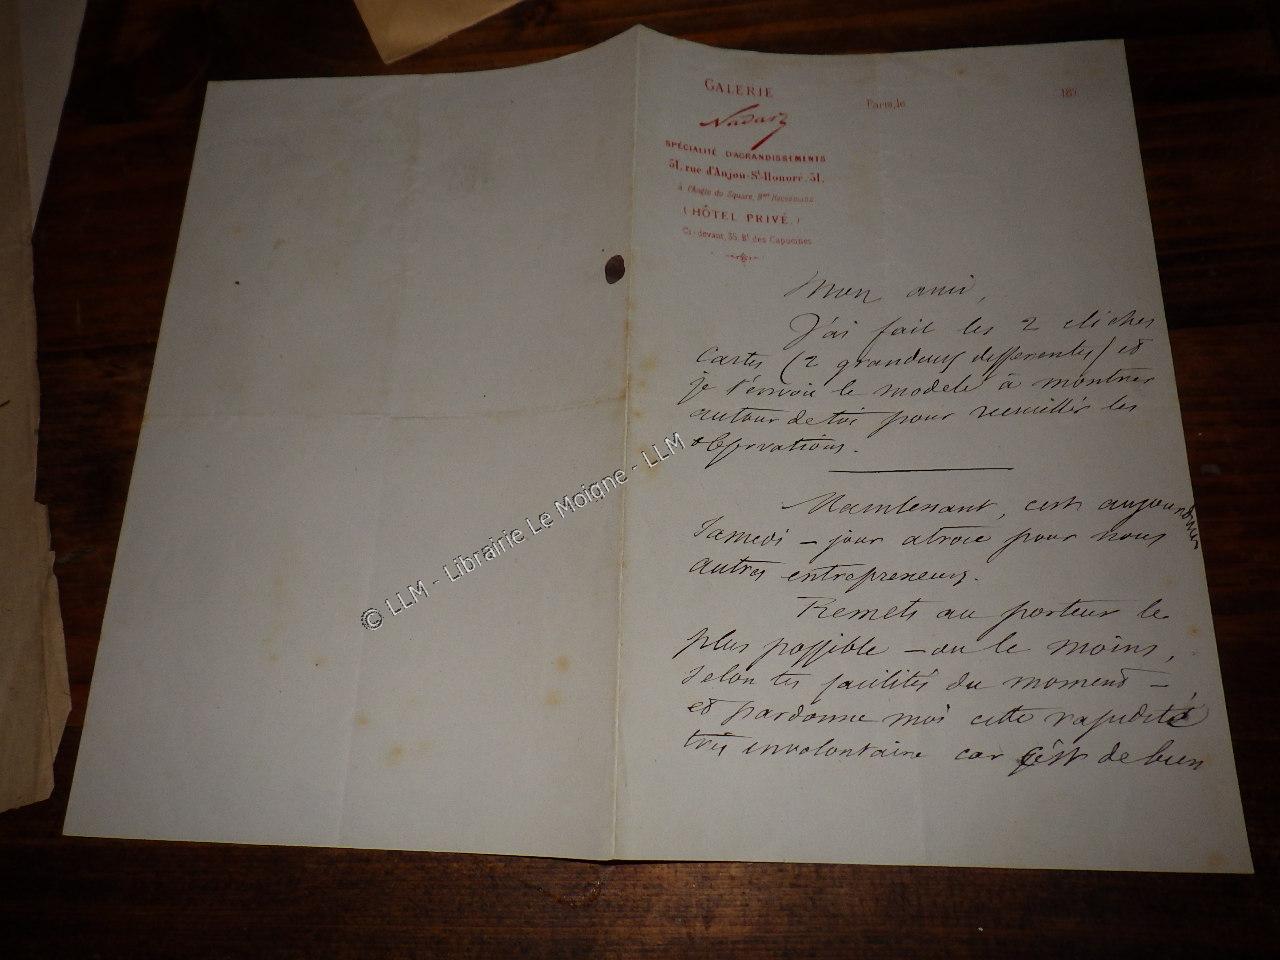 GALERIE
Nadar
SPÉCIALITÉ D'AGRANDISSEMENTS
51, rue d'Anjou-St-Honoré, 51,
à l'Angle du Square, Bard Haussmann
(HÔTEL PRIVÉ.)
Ci-devant, 35, Bd des Capucines
Paris, le 187
Mon ami,
J'ai fait les 2 clichés
Cartes (2 grandeurs differentes) et
je t'envoie le modele à montrer
autour de toi pour recueillir les
observations.
Maintenant, c'est aujourd'hui
Samedi – jour atroce pour nous
autres entrepreneurs.
Remets au porteur le
plus possible – ou le moins,
selon tes facilités du moment –
et pardonne moi cette rapidité
très involontaire car c'est de bien
© LLM - Librairie Le Moigne - LLM